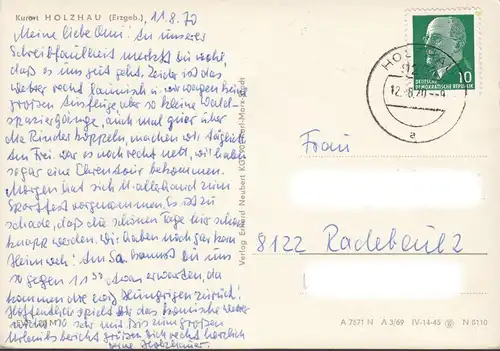 Kurort HOLZHAU (Erzgeb.) 11.8.70
Meine liebe Omi! An unserer
Schreibfaulheit merkst Du wohl,
daß es uns gut geht. Leider ist das
Wetter recht launisch u. wir wagen keine
großen Ausflüge, aber so kleine Wald-
spaziergänge, auch mal quer über
die Rinderkoppeln, machen wir täglich.
Am Frei. war es noch recht nett, wir haben
sogar eine Ehrentour bekommen.
Morgen hat sich M. allerhand zum
Sportfest vorgenommen. Es ist zu
schade, daß die schönen Tage nur schon
knapp werden. Wir haben noch gar kein
Heimweh! Am Sa. kannst Du uns
so gegen 11³⁰ etwa erwarten, da
kommen die ewig Hungrigen zurück!
Hoffentlich spielt Dir das komische Wetter
nicht so sehr mit. Bis zum großen
Urlaubsbericht grüßt Dich recht herzlich
Deine Holzhauer.
Verlag Erhard Neubert KG Karl-Marx-Stadt
HOLZHAU
12.-8.70
a
DEUTSCHE
DEMOKRATISCHE REPUBLIK
10
Frau
8122 Radebeul 2
A 7571 N A 3/69 IV-14-45 N 5110